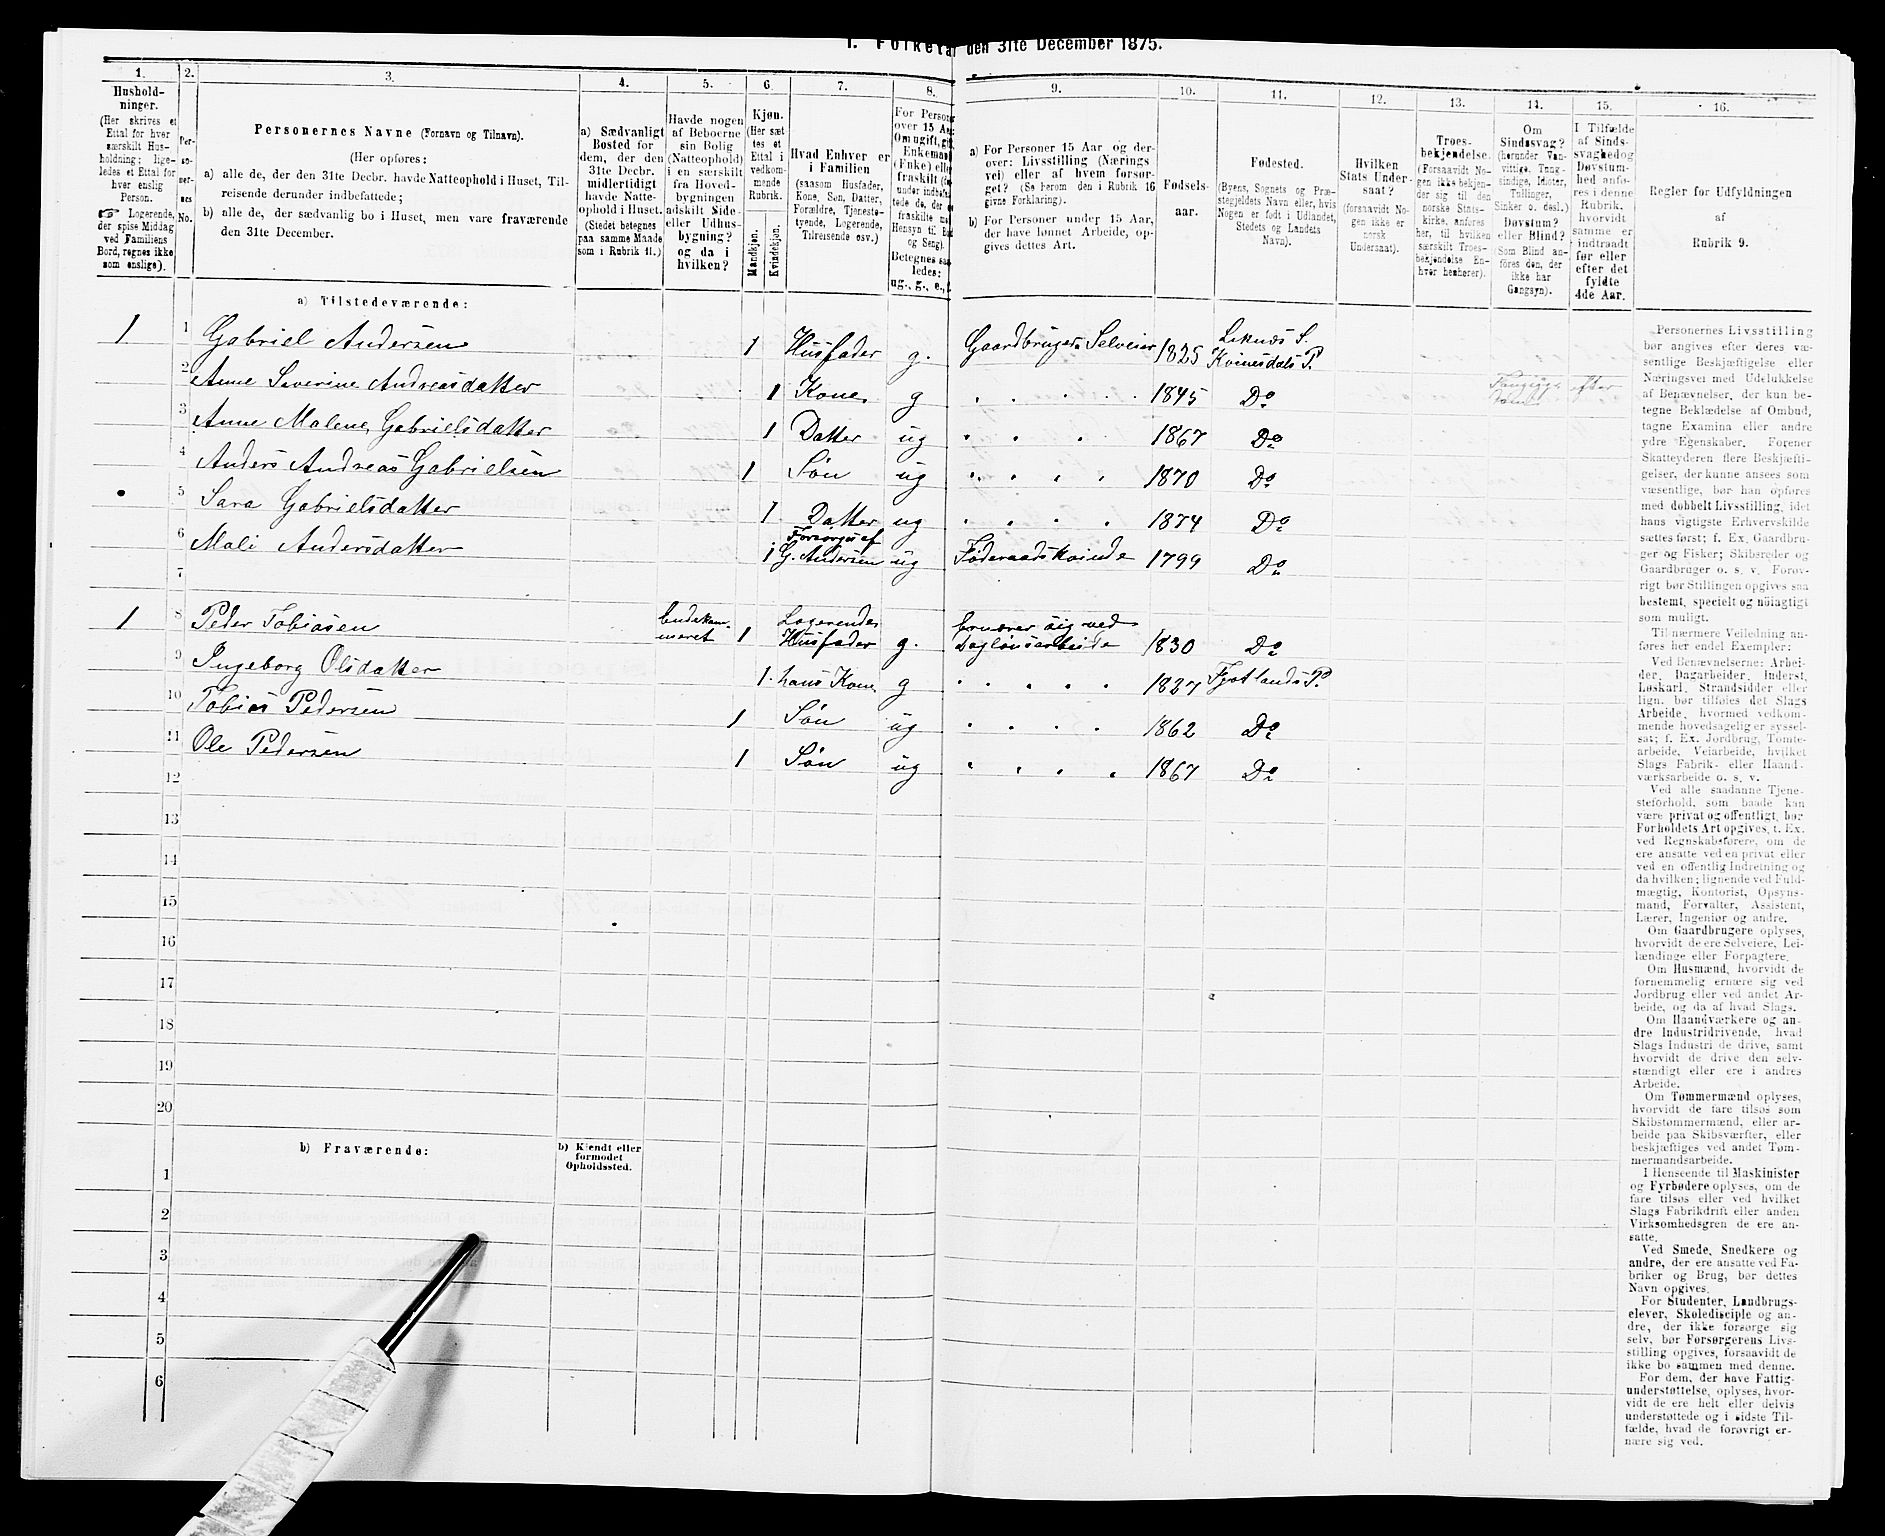 1. Folketal den 31te December 1875.
1. 2. 3. 4. 5. 6. 7. 8. 9. 10. 11. 12. 13. 14. 15. 16.
Hushold-
ninger.
(Her skrives et
Ettal for hver
særskilt Hus-
holdning; lige-
ledes et Ettal for
hver enslig
Person.
☞ Logerende,
der spise Middag
ved Familiens
Bord, regnes ikke
som enslige).
Per-
so-
ner-
nes
No.
Personernes Navne (Fornavn og Tilnavn).
(Her opføres:
a) alle de, der den 31te Decbr. havde Natteophold i Huset, Til-
reisende derunder indbefattede;
b) alle de, der sædvanlig bo i Huset, men vare fraværende
den 31te December.
a) Sædvanligt
Bosted for
dem, der den
31te Decbr.
midlertidigt
havde Natte-
ophold i Huset.
(Stedet betegnes
paa samme Maade
som i Rubrik 11.)
Havde nogen
af Beboerne
sin Bolig
(Natteophold)
i en særskilt
fra Hoved-
bygningen
adskilt Side-
eller Udhus-
bygning?
og da i
hvilken?
Kjøn.
(Her sæt-
tes et
Ettal i
vedkom-
mende
Rubrik.
Mandkjøn.
Kvindekjøn.
Hvad Enhver er
i Familien
(saasom Husfader,
Kone, Søn, Datter,
Forældre, Tjeneste-
tyende, Logerende,
Tilreisende osv.)
For Person
over 15 Aa
Om ugift, gif
Enkemand
(Enke) elle
fraskilt
Betegnes saa
ledes:
ug., g., e.,
a) For Personer 15 Aar og der-
over: Livsstilling (Nærings
vei) eller af hvem forsør-
get? (Se herom den i Rubrik 16
givne Forklaring).
b) For Personer under 15 Aar,
der have lønnet Arbeide, op-
gives dettes Art.
Fødsels-
aar.
Fødested.
(Byens, Sognets og Præ-
stegjeldets Navn eller, hvis
Nogen er født i Udlandet,
Stedets og Landets
Navn).
Hvilken
Stats Under-
saat?
(forsaavidt No-
gen ikke er
norsk
Undersaat).
Troes-
bekjendelse.
(Forsaavidt No-
gen ikke bekjen-
der sig til den
norske Stats-
kirke, anføres
her, til hvilken
særskilt Troes-
bekjendelse En-
hver henhører).
Om
Sindssvag?
(herunder Van-
vittige, Tung-
sindige, Idioter,
Tullinger,
Sinker o. desl.)
Døvstum?
eller Blind?
Som Blind an-
føres den, der
ikke har
Gangsyn).
I Tilfælde
af Sinds-
svaghed og
Døvstum-
hed anfø-
res i denne
Rubrik,
hvorvidt
samme er
indtraadt
før eller
efter det
fyldte
4de Aar.
Regler for Udfyldningen
af
Rubrik 9.
a) Tilstedeværende:
1 1 Gabriel Andersen 1 Husfader g. Gaardbruger Selveier 1825 Leknæs S. Kvinesdals P.
2 Anne Severine Andreasdatter 1 Kone g 1845 Do efter
3 Anne Malene Gabrielsdatter 1 Datter ug 1867 Do
4 Anders Andreas Gabrielsen 1 Søn ug 1870 Do
5 Sara Gabrielsdatter 1 Datter ug 1874 Do
6 Mali Andersdatter 1 Forsørges af G. Andersen ug Føderaadskvinde 1799 Do
7
1 8 Peder Tobiasen 1 Logerende Husfader g. ernærer sig ved Daglønsarbeide 1830 Do
9 Ingeborg Olsdatter 1 hans Kone g 1827 Fjotlands P.
10 Tobias Pedersen 1 Søn ug 1862 Do
11 Ole Pedersen 1 Søn ug 1867 Do
12
13
14
15
16
17
18
19
20
b) Fraværende:
b) Kjendt eller
formodet
Opholdssted.
1
2
3
4
5
6
Personernes Livsstilling
bør angives efter deres væ-
sentlige Beskjæftigelse eller
Næringsvei med Udelukkelse
af Benævnelser, der kun be-
tegne Beklædelse af Ombud,
tagne Examina eller andre
ydre Egenskaber. Forener
Skatteyderen flere Beskjæfti-
gelser, der kunne ansees som
væsentlige, bør han opføres
med dobbelt Livsstilling, idet
hans vigtigste Erhvervskilde
sættes først; f. Ex. Gaardbru-
ger og Fisker; Skibsreder og
Gaardbruger o. s. v. Forøv-
rigt bør Stillingen opgives saa
bestemt, specielt og nøiagtigt
som muligt.
Til nærmere Veiledning an-
føres her endel Exempler:
Ved Benævnelserne: Arbei-
der, Dagarbeider, Inderst,
Løskarl, Strandsidder eller
lign. bør tilføies det Slags
Arbeide, hvormed vedkom-
mende hovedsagelig er syssel-
sat; f. Ex. Jordbrug, Tomte-
arbeide, Veiarbeide, hvilket
Slags Fabrik- eller Haand-
værksarbeide o. s. v.
Ved alle saadanne Tjene-
steforhold, som baade kan
være privat og offentligt, bør
Forholdets Art opgives, t. Ex.
ved Regnskabsførere, om de
ere ansatte ved en privat eller
ved en offentlig Indretning og
da hvilken; lignende ved Fuld-
mægtig, Kontorist, Opsyns-
mand, Forvalter, Assistent,
Lærer, Ingeniør og andre.
Om Gaardbrugere oplyses,
hvorvidt de ere Selveiere, Lei-
lændinge eller Forpagtere.
Om Husmænd, hvorvidt de
fornemmelig ernære sig ved
Jordbrug eller ved andet Ar-
beide, og da af hvad Slags.
Om Haandværkere og an-
dre Industridrivende, hvad
Slags Industri de drive, samt
hvorvidt de drive den selv-
stændigt eller ere i andres
Arbeide.
Om Tømmermænd oplyses,
hvorvidt de fare tilsøs som
Skibstømmermænd, eller ar-
beide paa Skibsværfter, eller
beskjæftiges ved andet Tøm-
mermandsarbeide.
I Henseende til Maskinister
og Fyrbødere oplyses, om de
fare tilsøs eller ved hvilket
Slags Fabrikdrift eller anden
Virksomhedsgren de ere an-
satte.
Ved Smede, Snedkere og
andre, der ere ansatte ved Fa-
briker og Brug, bør dettes
Navn opgives.
For Studenter, Landbrugs-
elever, Skoledisciple og an-
dre, der ikke forsørge sig
selv, bør Forsørgerens Livs-
stilling opgives, forsaavidt de
ikke bo sammen med denne.
For dem, der have Fattig-
understøttelse, oplyses, hvor-
vidt de ere helt eller delvis
understøttede og i sidste Til-
fælde, hvad de forøvrigt er-
nære sig ved.